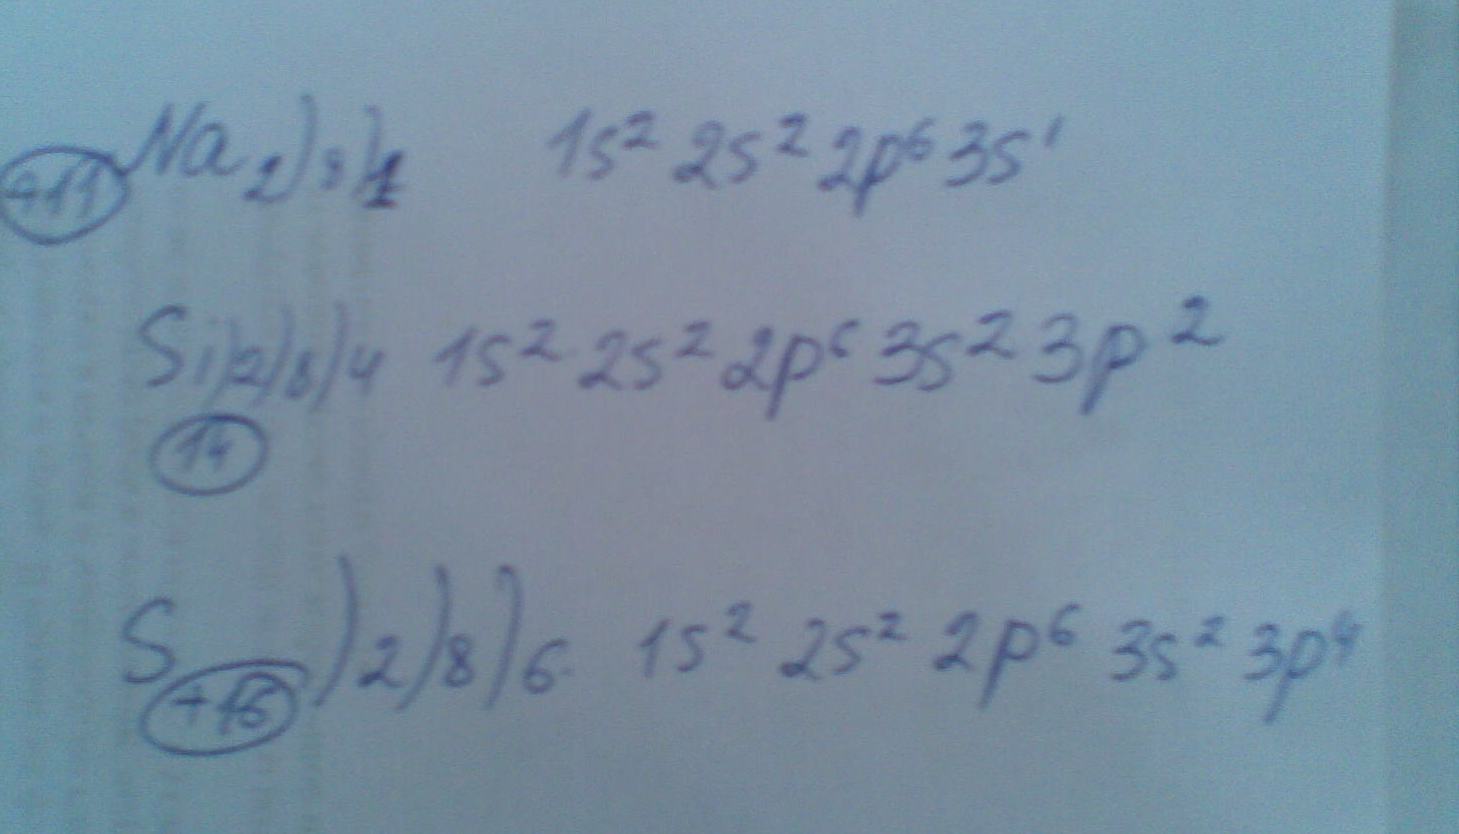 +11 Na 2)8)1 1s² 2s² 2p⁶ 3s¹
Si)2)8)4 1s² 2s² 2p⁶ 3s² 3p²
14
S +16 )2)8)6 1s² 2s² 2p⁶ 3s² 3p⁴